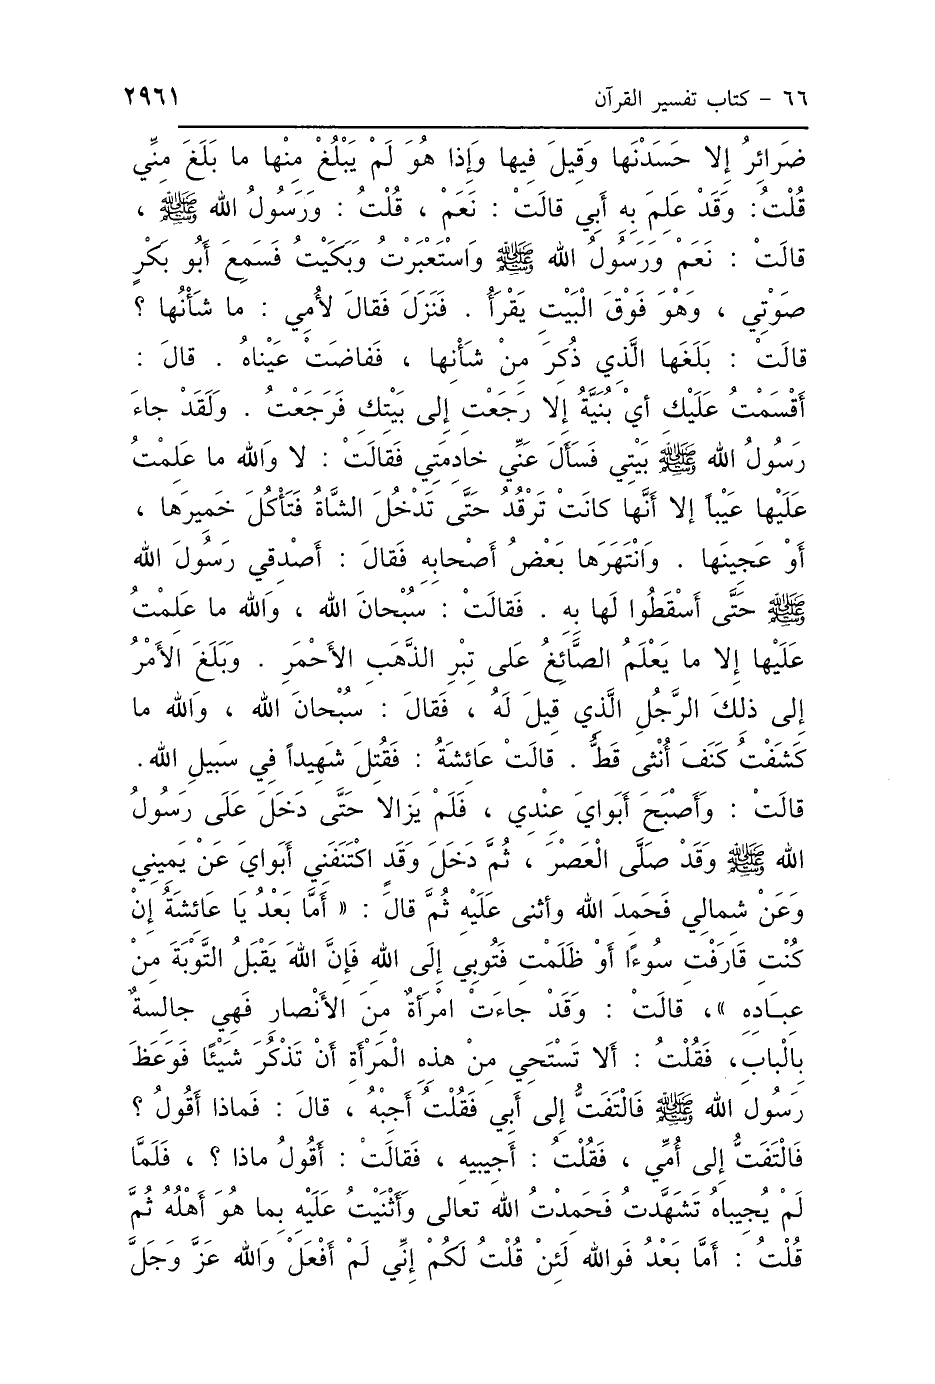 ٦٦ - كتاب تفسير القرآن ٢٩٦١
ضَرَائِرُ إِلا حَسَدْنَها وَقِيلَ فِيها وَإِذا هُوَ لَمْ يَبْلُغْ مِنْها ما بَلَغَ مِنِّي
قُلْتُ: وَقَدْ عَلِمَ بِهِ أَبي قالَتْ : نَعَمْ ، قُلْتُ : وَرَسُولُ الله ﷺ ،
قالَتْ : نَعَمْ وَرَسُولُ الله ﷺ وَاسْتَعْبَرْتُ وَبَكَيْتُ فَسَمِعَ أَبُو بَكْرٍ
صَوْتِي ، وَهْوَ فَوْقَ الْبَيْتِ يَقْرَأُ . فَنَزَلَ فَقالَ لأُمِي : ما شَأْنُها ؟
قالَتْ : بَلَغَها الَّذِي ذُكِرَ مِنْ شَأْنِها ، فَفاضَتْ عَيْناهُ . قالَ :
أَقْسَمْتُ عَلَيْكِ أَيْ بُنَيَّةُ إِلا رَجَعْتِ إِلى بَيْتِكِ فَرَجَعْتُ . وَلَقَدْ جاءَ
رَسُولُ الله ﷺ بَيْتِي فَسَأَلَ عَنِّي خادِمَتِي فَقالَتْ : لا وَالله ما عَلِمْتُ
عَلَيْها عَيْباً إِلا أَنَّها كانَتْ تَرْقُدُ حَتَّى تَدْخُلَ الشَّاةُ فَتَأْكُلَ خَمِيرَها ،
أَوْ عَجِينَها . وَانْتَهَرَها بَعْضُ أَصْحابِهِ فَقالَ : أَصْدِقي رَسُولَ الله
ﷺ حَتَّى أَسْقَطُوا لَها بِهِ . فَقالَتْ : سُبْحانَ الله ، وَالله ما عَلِمْتُ
عَلَيْها إِلا ما يَعْلَمُ الصَّائِغُ عَلى تِبْرِ الذَّهَبِ الأَحْمَرِ . وَبَلَغَ الأَمْرُ
إِلى ذلِكَ الرَّجُلِ الَّذِي قِيلَ لَهُ ، فَقالَ : سُبْحانَ الله ، وَالله ما
كَشَفْتُ كَنَفَ أُنْثى قَطُّ . قالَتْ عَائِشَةُ : فَقُتِلَ شَهِيداً فِي سَبِيلِ الله.
قالَتْ : وَأَصْبَحَ أَبَوايَ عِنْدِي ، فَلَمْ يَزالا حَتَّى دَخَلَ عَلَى رَسُولُ
الله ﷺ وَقَدْ صَلَّى الْعَصْرَ ، ثُمَّ دَخَلَ وَقَدِ اكْتَنَفَنِي أَبَوايَ عَنْ يَمِينِي
وَعَنْ شِمالِي فَحَمِدَ الله وَأَثنى عَلَيْهِ ثُمَّ قالَ : « أَمَّا بَعْدُ يَا عَائِشَةُ إِنْ
كُنْتِ قَارَفْتِ سُوءًا أَوْ ظَلَمْتِ فَتُوبِي إِلَى الله فَإِنَّ اللهَ يَقْبَلُ التَّوْبَةَ مِنْ
عِبـَادِهِ »، قالَتْ : وَقَدْ جاءَتِ امْرَأَةٌ مِنَ الأَنْصارِ فَهِي جالِسةٌ
بِالْبابِ، فَقُلْتُ : أَلا تَسْتَحِي مِنْ هذِهِ الْمَرْأَةِ أَنْ تَذْكُرَ شَيْئًا فَوَعَظَ
رَسُول الله ﷺ فَالْتَفَتُّ إِلى أَبي فَقُلْتُ أَجِبْهُ ، قالَ : فَماذا أَقُولُ ؟
فَالْتَفَتُّ إِلى أُمِّي ، فَقُلْتُ : أَجِيبِيهِ ، فَقالَتْ : أَقُولُ ماذا ؟ ، فَلَمَّا
لَمْ يُجِيباهُ تَشَهَّدْتُ فَحَمِدْتُ الله تَعالى وَأَثْنَيْتُ عَلَيْهِ بِما هُوَ أَهْلُهُ ثُمَّ
قُلْتُ : أَمَّا بَعْدُ فَوالله لَئِنْ قُلْتُ لَكُمْ إِنِّي لَمْ أَفْعَلْ وَالله عَزَّ وَجَلَّ